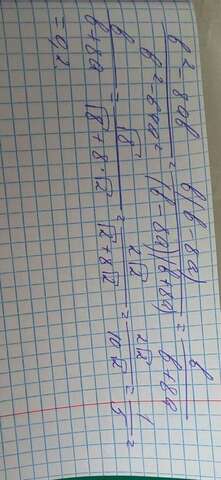 b²-8ab / b²-64a² = b(b-8a) / (b-8a)(b+8a) = b / b+8a
b / b+8a = √8 / √8+8·√2 = 2√2 / 2√2+8√2 = 2√2 / 10√2 = 1 / 5 =
= 0,2